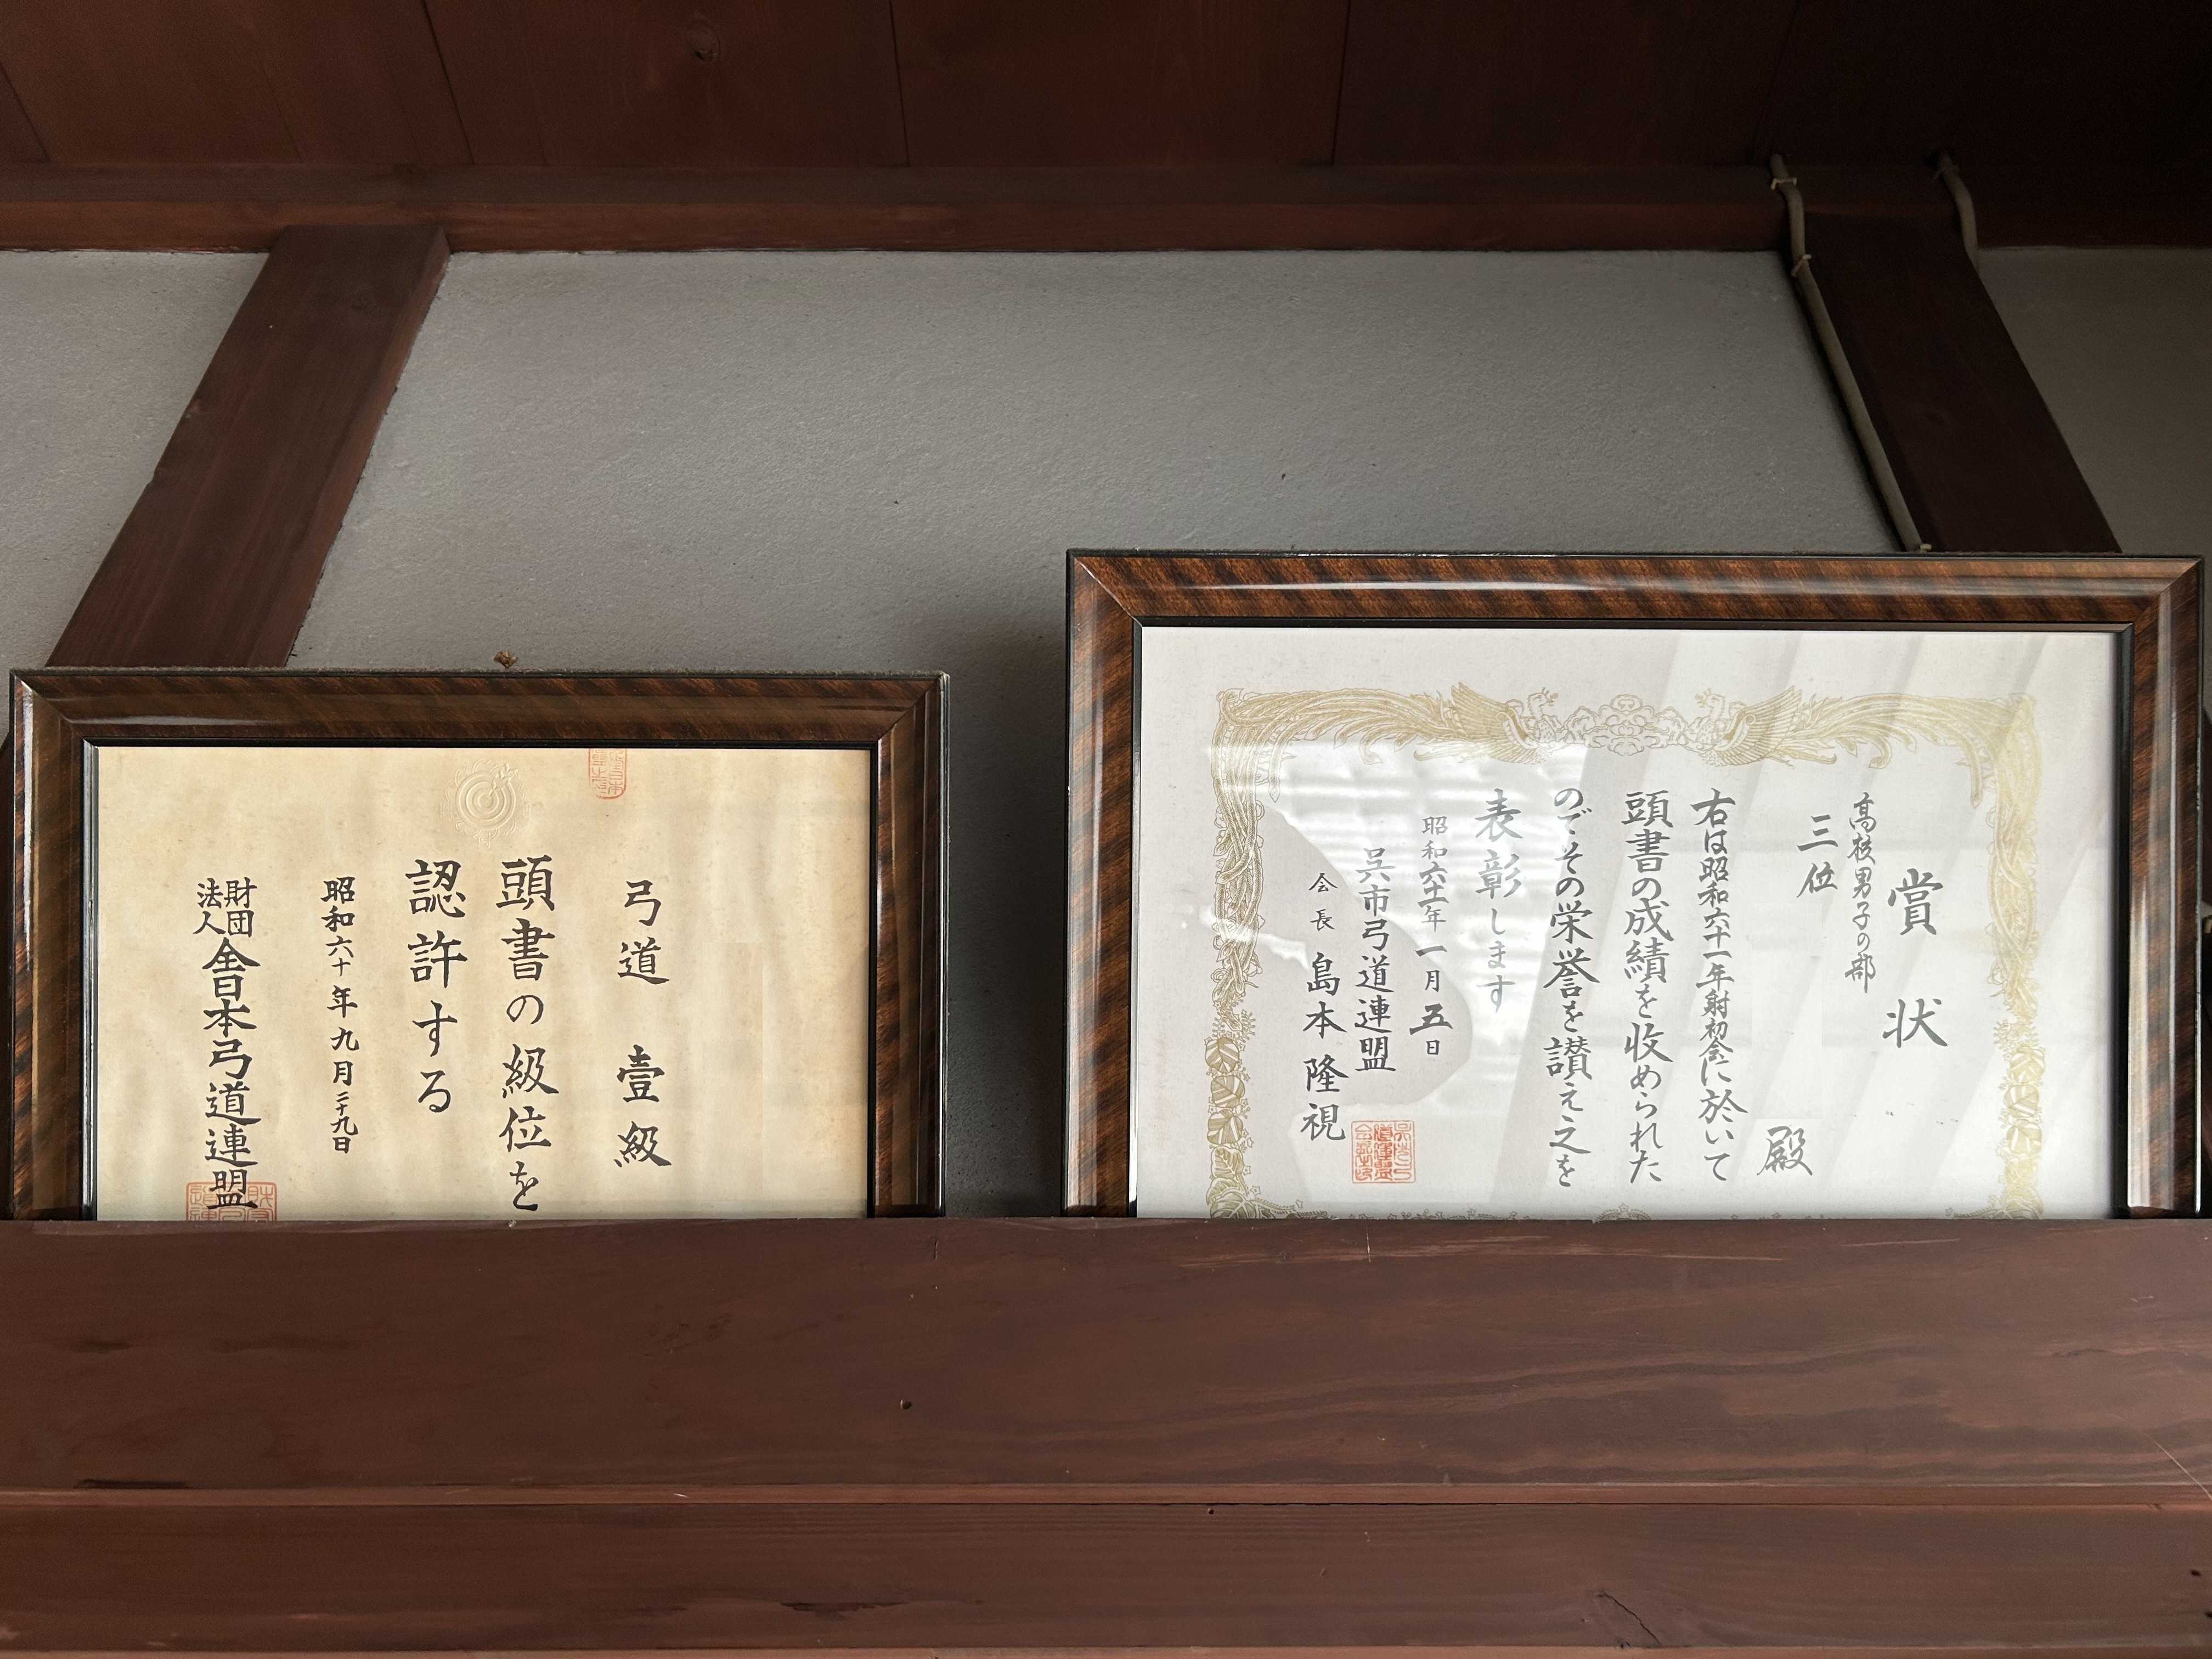 弓道 壹級
頭書の級位を
認許する
昭和六十年九月二十九日
財団法人全日本弓道連盟
賞状
高校男子の部
三位
殿
右は昭和六十一年射初会に於いて
頭書の成績を収められた
のでその栄誉を讃え之を
表彰します
昭和六十一年一月五日
呉市弓道連盟
会長 島本隆視